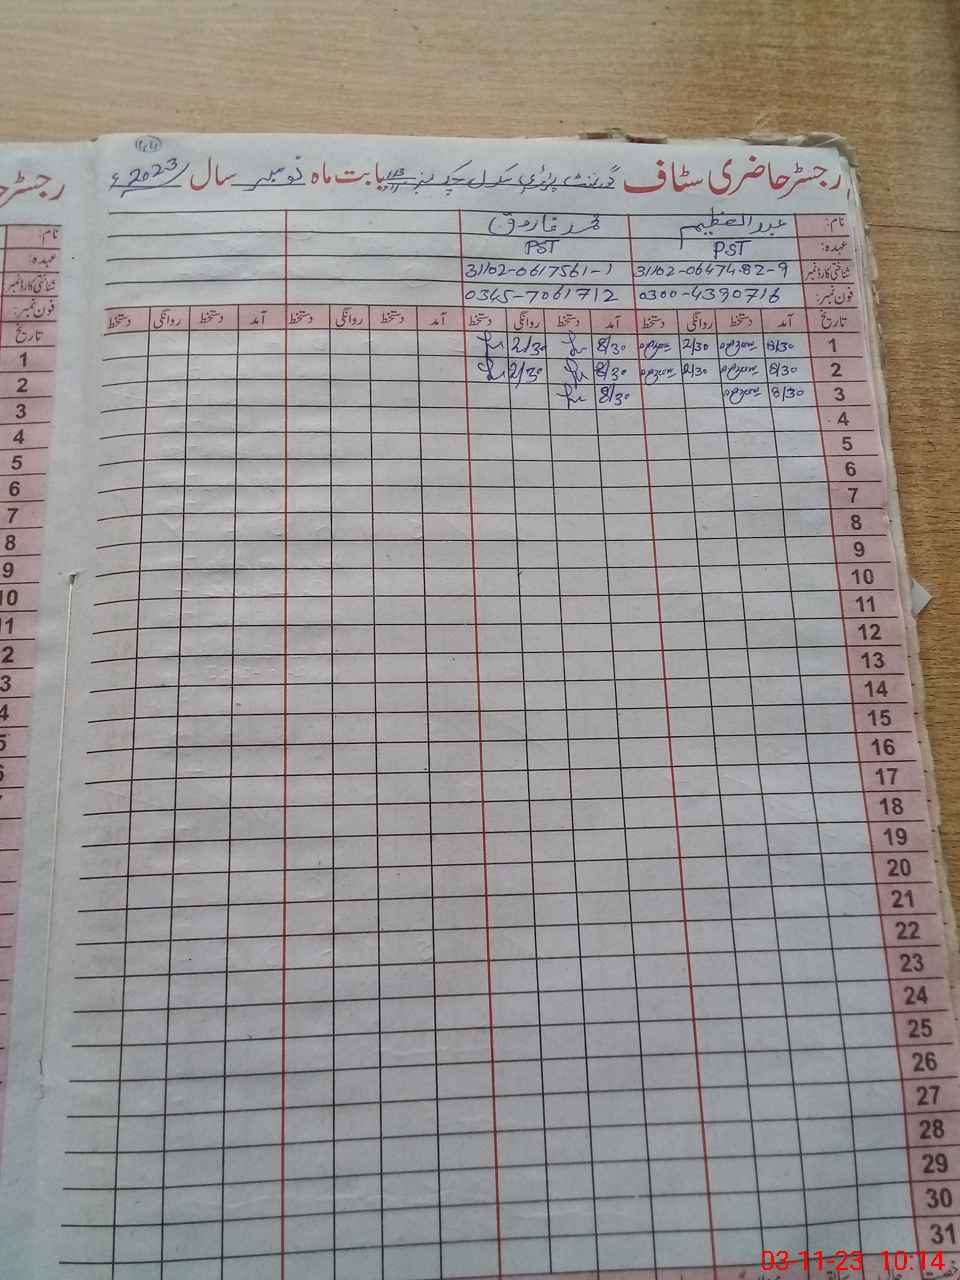 رجسٹر حاضری سٹاف گورنمنٹ پرائمری سکول چک نمبر 113 بابت ماہ نومبر سال 2023ء
نام: عبدالعظیم محمد فاروق
عہدہ: PST PST
شناختی کارڈ نمبر 31102-0647482-9 31102-0617561-1
فون نمبر: 0300-4390716 0345-7061712
تاریخ آمد دستخط روانگی دستخط آمد دستخط روانگی دستخط آمد دستخط روانگی دستخط آمد دستخط روانگی دستخط
1 8/30 2/30 8/30 2/30
2 8/30 2/30 8/30 2/30
3 8/30 8/30
4
5
6
7
8
9
10
11
12
13
14
15
16
17
18
19
20
21
22
23
24
25
26
27
28
29
30
31
03-11-23 10:14